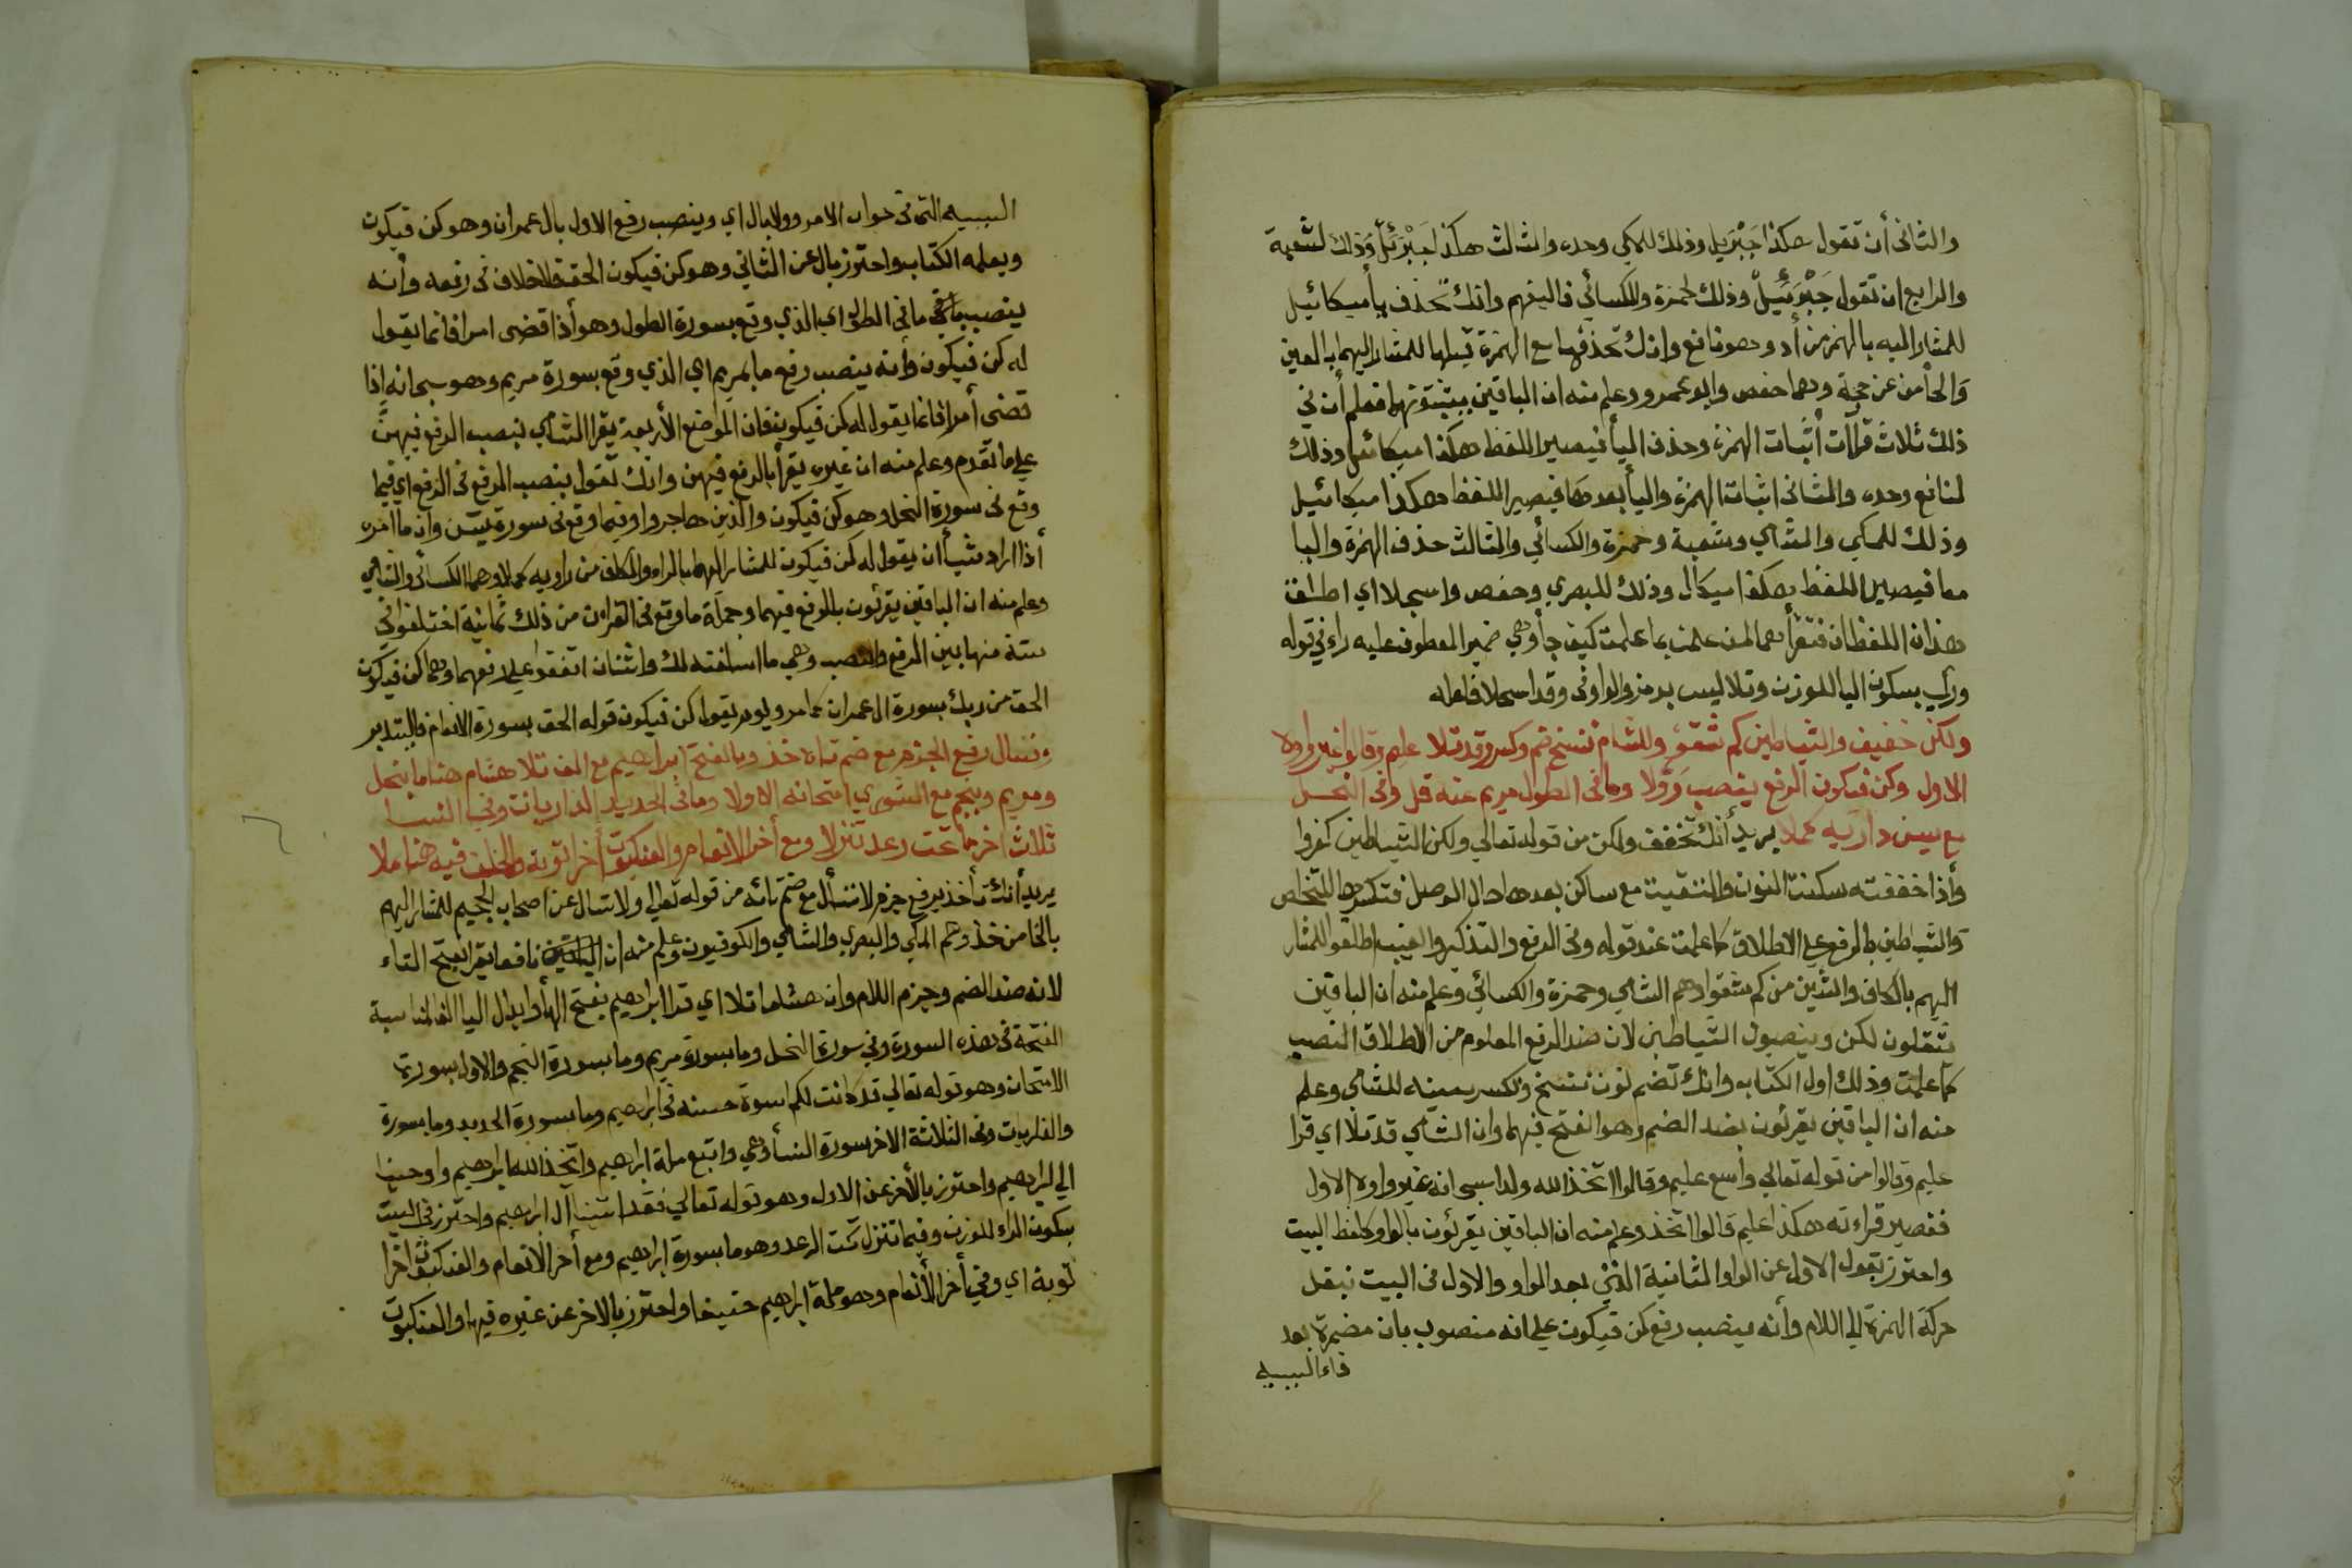 والثانى أن تقول هكذا جَبْرِيل وذلك للمكي وحده والثالث هكذا جَبْرَئِلّ وذلك لشعبة
والرابع ان تقول جَبْرَئِيلْ وذلك لحمزة والكسائي فاليفهم وانك تحذف يأ ميكائيل
للمشار اليه بالهمز من أد وهو نافع وانك تحذفها مع الهمزة قبلها للمشار اليهما بالعين
وَالحأ من عن حجة وهما حفص وابو عمرو وعلم منه ان الباقين يثبتونهما فعلم أن في
ذلك ثلاث قرأآت أثبات الهمزة وحذف اليأ فيصير اللفظ هكذا ميكائل وذلك
لنافع وحده والثانى اثبات الهمزة واليأ بعدها فيصير اللفظ هكذا ميكائيل
وذلك للمكي والشامي وشعبة وحمزة والكسائي والثالث حذف الهمزة واليا
معا فيصير اللفظ هكذا ميكال وذلك للبصري وحفص واسجلا اي اطلق
هذان اللفظان فتقرأهما لمن علمت بما علمت كيف جأ وهي ضمير المعطوف عليه راء في قوله
وري بسكون اليا للوزن وتلا ليس برمز والواو في وقد اسجلا فاصله
ولكن خفيف والشياطين كم شفو وللشام ننسخ ضم وكسر وقد تلا عليم وقالوا غير واوه
الاول وكن فيكون الرفع ينصب رُوّلا وما فى الطول مريم عنه قل وفى النحل
مع يسن راويه كملا يريد أنك تخفف ولكن من قوله تعالي ولكن الشياطين كفروا
وأذا خففته سكنت النون والتقيت مع ساكن بعدها حال الوصل فتكسرها للتخلص
وَالشياطين بالرفع علي الاطلاق كما علمت عند قوله وفى الرفع والتذكير والغيب اطلقوا للمشار
اليهم بالكاف والشين من كم شفوا وهم الشامي وحمزة والكسائي وعلم منه ان الباقين
يثقلون لكن وينصبون الشياطين لان ضد الرفع المعلوم من الاطلاق النصب
كما علمت وذلك اول الكتاب وانك تضم نون ننسخ وتكسر سينه للشامي وعلم
منه ان الباقين يقرئون بضد الضم وهو الفتح فيهما وان الشامي قد تلا اي قرا
عليم وقالوا من قوله تعالي واسع عليم وقالوا اتخذ الله ولدا سبحانه غير واوه الاول
فتصير قراءته هكذا عليم قالوا اتخذ وعلم منه ان الباقين يقرئون بالواو كلفظ البيت
واحترز بقول الاول عن الواو الثانية التي بعد الواو والاول فى البيت نبقل
حركة الهمزة الي اللام وأنه ينصب رفع كن فيكون علي انه منصوب بان مضمرة بعد
فاء السببيه
السببيه التى فى جواب الامر وولا بال اي وينصب رفع الاول بال عمران وهو كن فيكون
ويعلمه الكتاب واحترز بال عن الثانى وهو كن فيكون الحق فلا خلاف فى رفعه وأنه
ينصب ما فى الطول اي الذي وقع بسورة الطول وهو أذا قضى امرا فانما يقول
له كن فيكون وأنه ينصب رفع ما بمريم اي الذي وقع بسورة مريم وهو سبحانه اذا
قضى أمرا فانما يقول له كن فيكون فان المواضع الأربعة يقرا الشامي بنصب الرفع فيهنّ
علي ما تقدم وعلم منه ان غيره يقرأ بالرفع فيهن وانك تقول بنصب الرفع فى الرفع اي فيما
وقع فى سورة النحل وهو كن فيكون والذين هاجروا وفيما وقع فى سورة يسن وانما امره
أذا اراد شيأ أن يقول له كن فيكون للمشار اليهما بالراء والكاف من راويه كملا وهما الكسائي والشامي
وعلم منه ان الباقين يقرئون بالرفع فيهما وجملة ما وقع فى القران من ذلك ثمانية اختلفوا في
ستة منها بين الرفع والنصب وهي ما اسلفته لك واثنان اتفقوا علي رفعهما وهما كن فيكون
الحق من ربك بسورة ال عمران كما مر ويوم يقول كن فيكون قوله الحق بسورة الانعام فاليتدبر
وتسال رفع الجزم مع ضم تاء خذ وبالفتح ابراهيم مع الف تلا هشام هنا ما بنحل
ومريم ونجم مع الشوري امتحانه الاولا وما فى الحديد الذاريات وفي النسا
ثلاث اخر ما تحت رعد تنزلا ومع أخر الانعام والعنكبوت أخر توبة والخلف فيه هنا ملا
يريد أنك تأخذ برفع جزم لا نتسأل مع ضم تائه من قوله تعالي ولا تسال عن اصحاب الجحيم للمشار اليهم
بالخا من خذ وهم المكي والبصري والشامي والكوفيون وعلم منه ان نافعا يقرا بفتح التاء
لانه ضد الضم وجزم اللام وان هشاما تلا اي قرا ابراهيم بفتح الهأ وابدال اليا الفا لمناسبة
الفتحة فى هذه السورة وفي سورة النحل وما بسورة مريم وما بسورة النجم والاول بسورة
الامتحان وهو قوله تعالي قد كانت لكم اسوة حسنه فى ابراهيم وما بسورة الحديد وما بسورة
والذاريات وفى الثلاثة الاخر بسورة النسأ وهي واتبع ملة ابراهيم واتخذ الله ابراهيم واوحينا
الي ابراهيم واحترز بالأخر عن الاول وهو قوله تعالي فقد اتينا آل ابراهيم واحترز فى البيت
بسكون الراء للوزن وفيما تنزل تحت الرعد وهو ما بسورة ابراهيم ومع أخر الانعام والعنكبوت اخرا
توبة اي وفي أخر الأنعام وهو ملة ابراهيم حنيفا واحترز بالاخر عن غيره فيها والعنكبوت